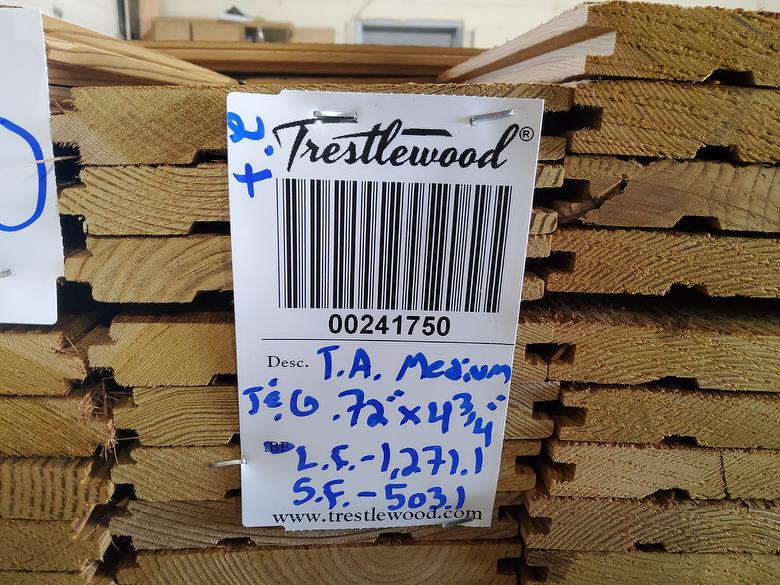 2.+
Trestlewood®
00241750
Desc. T.A. Medium
T&G .72" x 4 3/4"
BF L.F. - 1,271.1
S.F. - 503.1
www.trestlewood.com